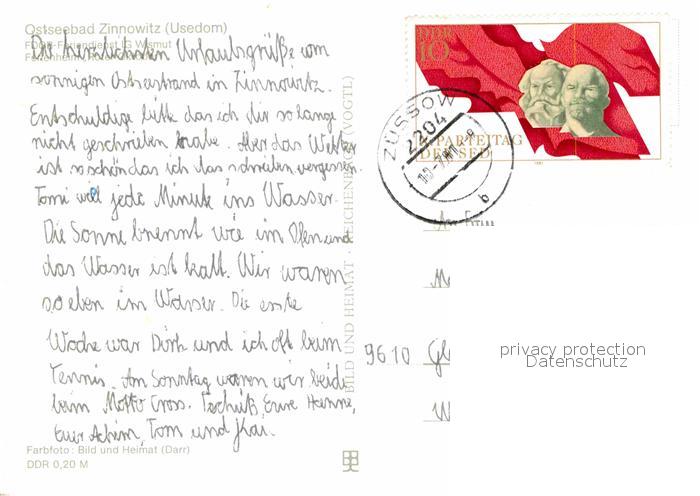 Ostseebad Zinnowitz (Usedom)
FDGB-Feriendienst IG Wismut
Die herzlichsten Urlaubsgrüße vom
sonnigen Ostseestrand in Zinnowitz.
Entschuldige bitte das ich dir so lange
nicht geschrieben habe. Aber das Wetter
ist so schön das ich das schreiben vergessen.
Tomi will jede Minute ins Wasser.
Die Sonne brennt wie im Ofen und
das Wasser ist kalt. Wir waren
soeben im Wasser. Die erste
Woche war Dirk und ich oft beim
Tennis. Am Sonntag waren wir beide
beim Motto Cross. Tschüß, Eure Hanne,
Euer Achim, Tom und Kai.
Farbfoto: Bild und Heimat (Darr)
DDR 0,20 M
BILD UND HEIMAT · REICHENBACH (VOGTL)
DDR
10
X. PARTEITAG
DER SED
1981
ZÜSSOW
2204
b
9610 Gl
W
privacy protection
Datenschutz